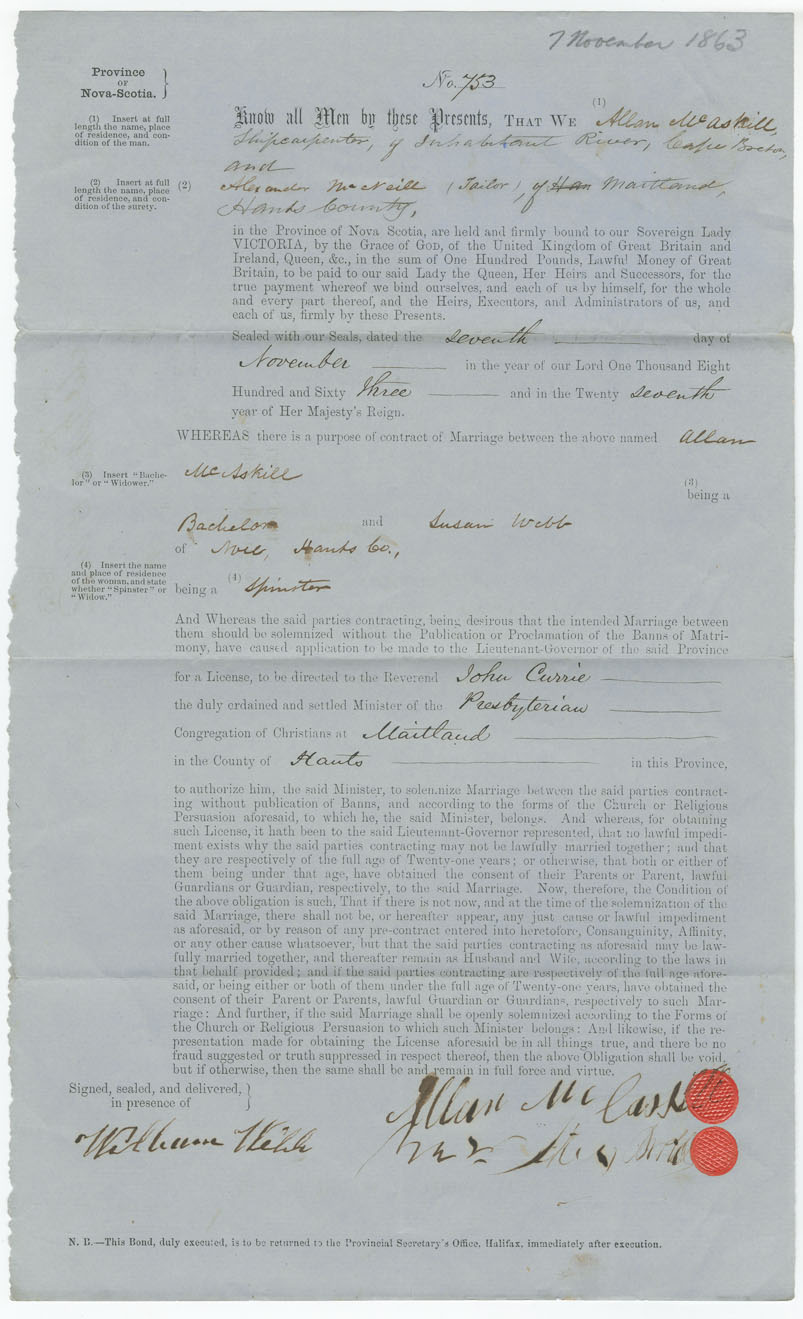 7 November 1863
Province
OF
Nova-Scotia.
No. 753
(1) Insert at full
length the name, place
of residence, and con-
dition of the man.
(1)
Know all Men by these Presents, THAT WE Allan McAskill,
Shipcarpenter, of Inhabitant River, Cape Breton,
and
(2) Insert at full
length the name, place
of residence, and con-
dition of the surety.
(2) Alexander McNeill (Tailor), of Han Maitland,
Hants County,
in the Province of Nova Scotia, are held and firmly bound to our Sovereign Lady
VICTORIA, by the Grace of GOD, of the United Kingdom of Great Britain and
Ireland, Queen, &c., in the sum of One Hundred Pounds, Lawful Money of Great
Britain, to be paid to our said Lady the Queen, Her Heirs and Successors, for the
true payment whereof we bind ourselves, and each of us by himself, for the whole
and every part thereof, and the Heirs, Executors, and Administrators of us, and
each of us, firmly by these Presents.
Sealed with our Seals, dated the seventh day of
November in the year of our Lord One Thousand Eight
Hundred and Sixty three and in the Twenty seventh
year of Her Majesty's Reign.
WHEREAS there is a purpose of contract of Marriage between the above named Allan
(3) Insert "Bache-
lor" or "Widower."
McAskill
(3)
being a
Bachelor and Susan Webb
of Noel, Hants Co.,
(4) Insert the name
and place of residence
of the woman, and state
whether "Spinster" or
"Widow."
being a (4) Spinster
And Whereas the said parties contracting, being desirous that the intended Marriage between
them should be solemnized without the Publication or Proclamation of the Banns of Matri-
mony, have caused application to be made to the Lieutenant-Governor of the said Province
for a License, to be directed to the Reverend John Currie
the duly ordained and settled Minister of the Presbyterian
Congregation of Christians at Maitland
in the County of Hants in this Province,
to authorize him, the said Minister, to solemnize Marriage between the said parties contract-
ing without publication of Banns, and according to the forms of the Church or Religious
Persuasion aforesaid, to which he, the said Minister, belongs. And whereas, for obtaining
such License, it hath been to the said Lieutenant-Governor represented, that no lawful impedi-
ment exists why the said parties contracting may not be lawfully married together; and that
they are respectively of the full age of Twenty-one years; or otherwise, that both or either of
them being under that age, have obtained the consent of their Parents or Parent, lawful
Guardians or Guardian, respectively, to the said Marriage. Now, therefore, the Condition of
the above obligation is such, That if there is not now, and at the time of the solemnization of the
said Marriage, there shall not be, or hereafter appear, any just cause or lawful impediment
as aforesaid, or by reason of any pre-contract entered into heretofore, Consanguinity, Affinity,
or any other cause whatsoever, but that the said parties contracting as aforesaid may be law-
fully married together, and thereafter remain as Husband and Wife, according to the laws in
that behalf provided; and if the said parties contracting are respectively of the full age afore-
said, or being either or both of them under the full age of Twenty-one years, have obtained the
consent of their Parent or Parents, lawful Guardian or Guardians, respectively to such Mar-
riage: And further, if the said Marriage shall be openly solemnized according to the Forms of
the Church or Religious Persuasion to which such Minister belongs: And likewise, if the re-
presentation made for obtaining the License aforesaid be in all things true, and there be no
fraud suggested or truth suppressed in respect thereof, then the above Obligation shall be void,
but if otherwise, then the same shall be and remain in full force and virtue.
Signed, sealed, and delivered,
in presence of
Allan Mc
William Webb
N. B.—This Bond, duly executed, is to be returned to the Provincial Secretary's Office, Halifax, immediately after execution.